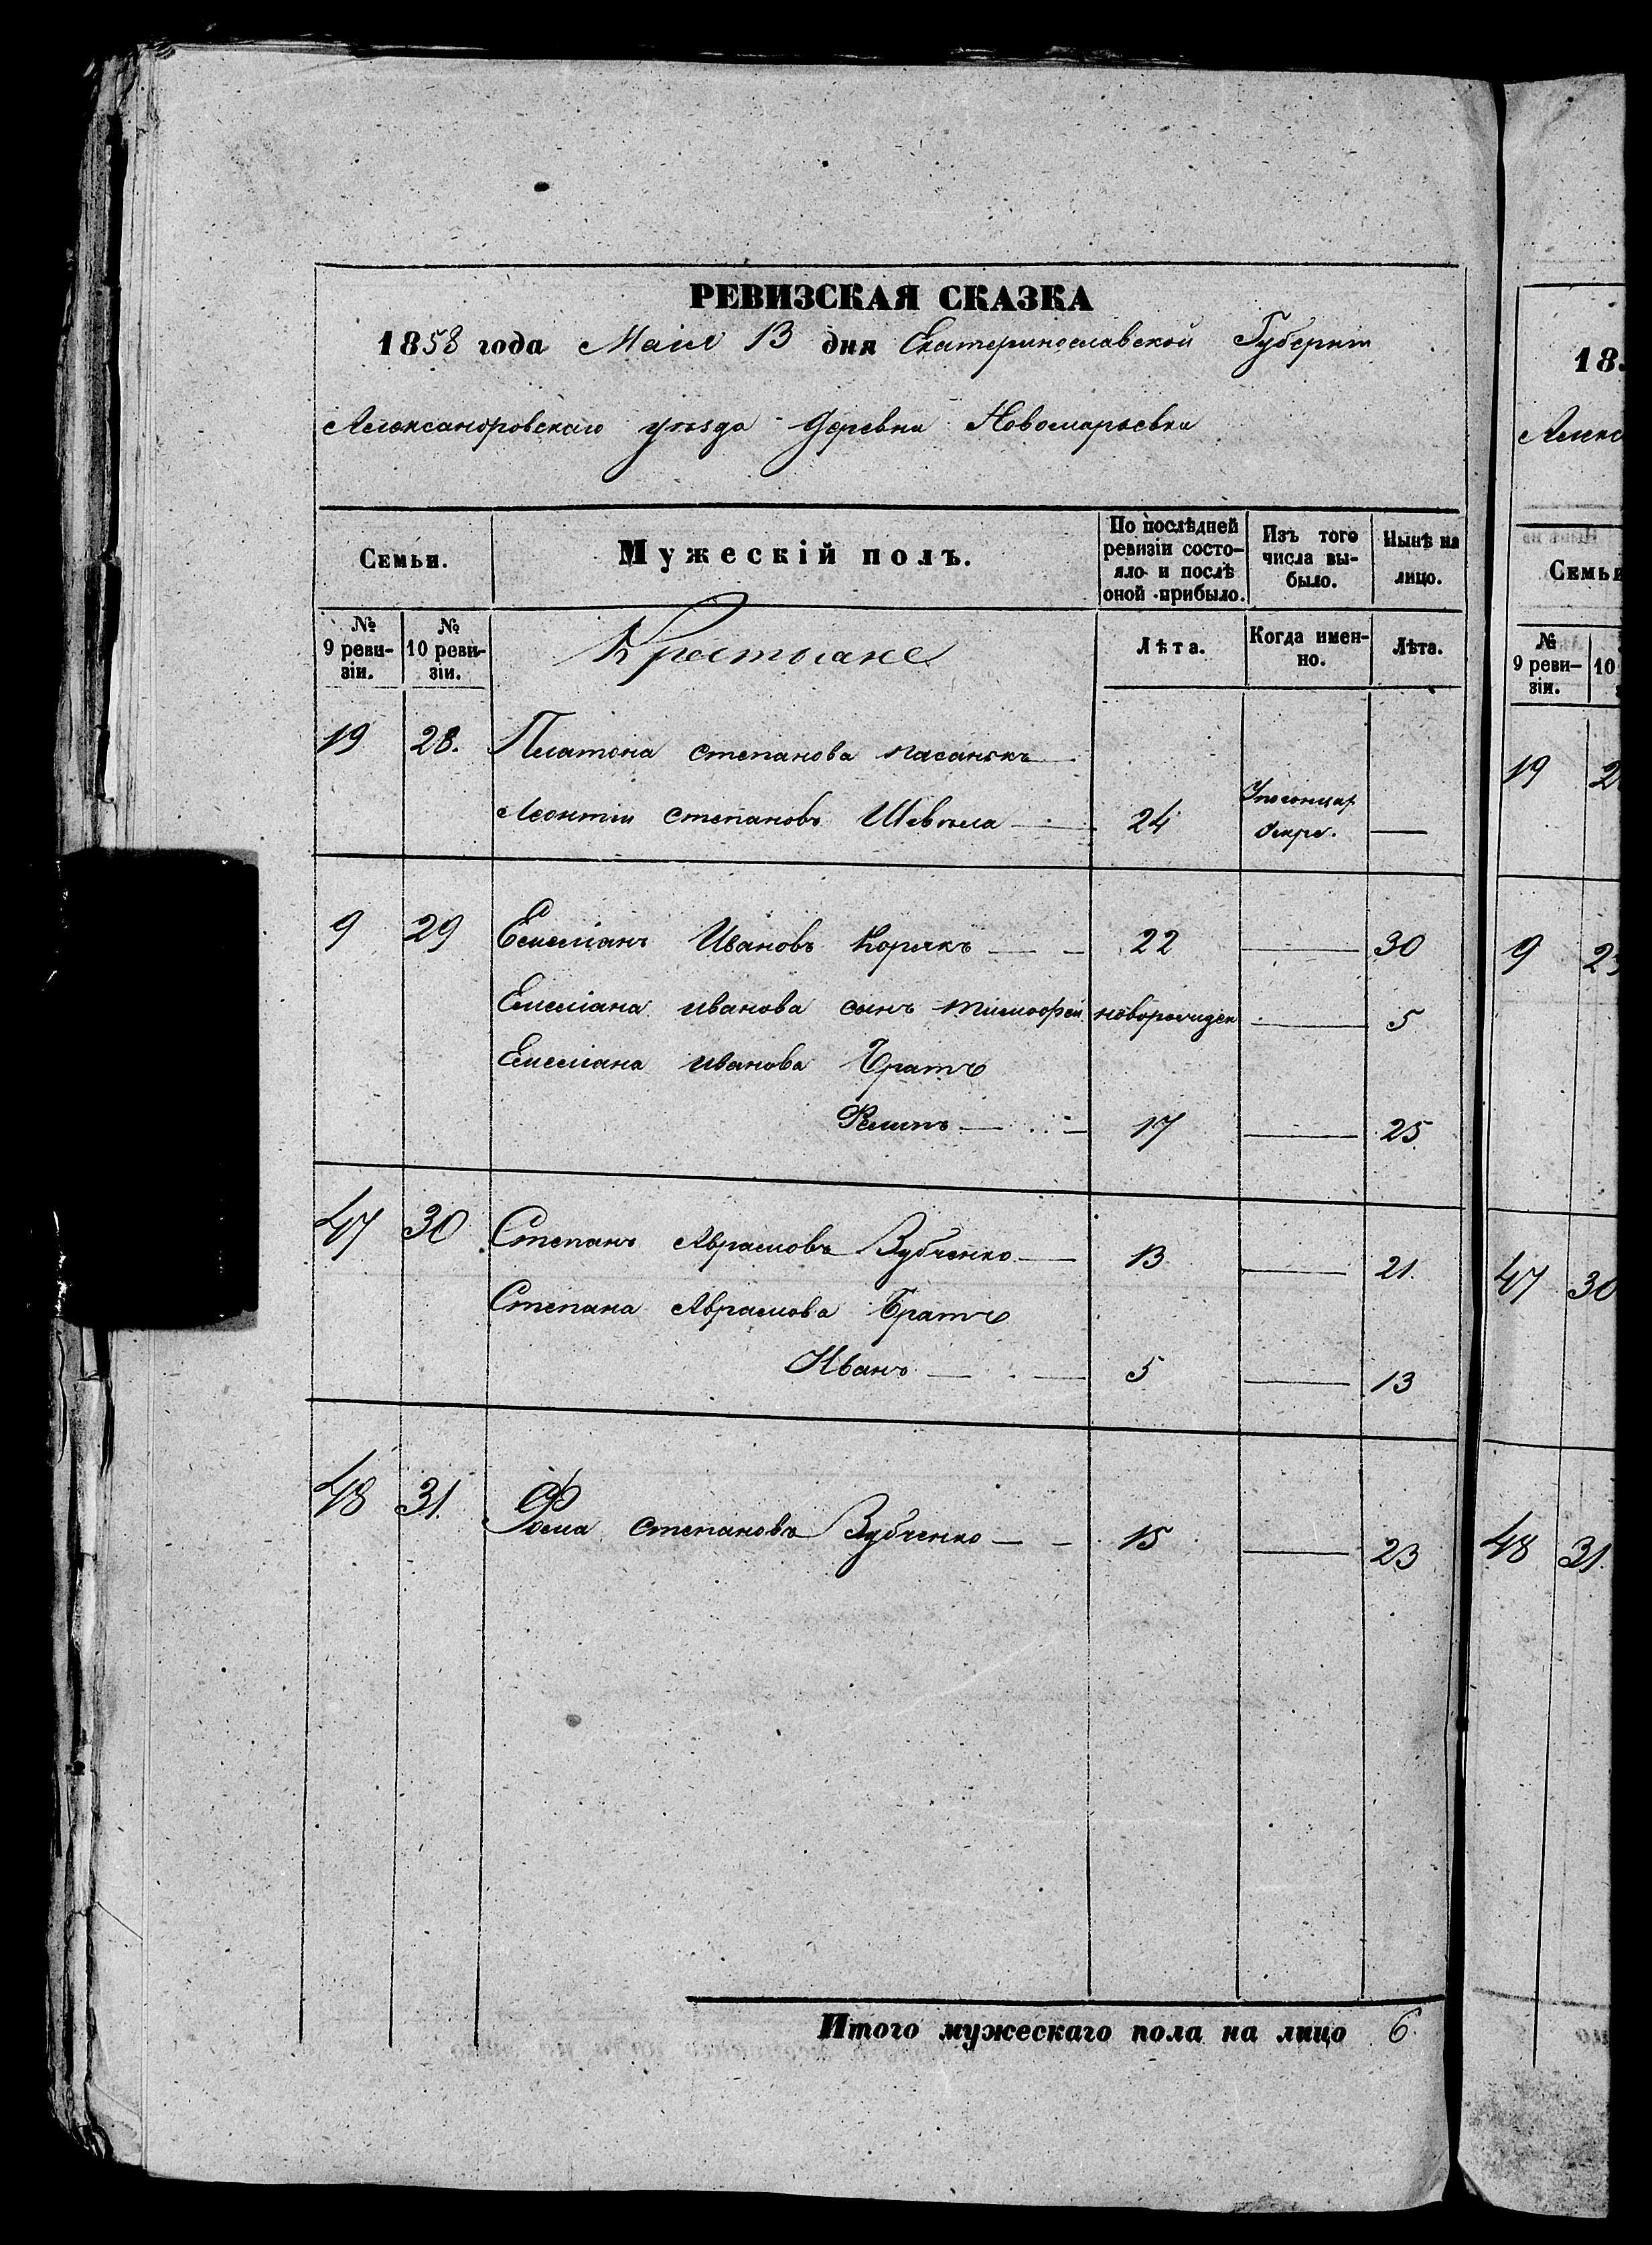 РЕВИЗСКАЯ СКАЗКА
1858 года Маія 13 дня Екатеринославской Губерніи
Александровскаго уѣзда деревни Новомарьевки
Семьи.
Мужескій полъ.
По послѣдней ревизіи состояло и послѣ оной прибыло.
Изъ того числа выбыло.
Нынѣ на лицо.
№ 9 ревизіи.
№ 10 ревизіи.
Крестьяне
Лѣта.
Когда именно.
Лѣта.
19 28. Платона Степанова пасынокъ
Леонтій Степановъ 24 —
9 29 Емеліанъ Ивановъ Корякъ — 22 — 30
Емеліана Иванова сынъ Тимофей новорожден — 5
Емеліана Иванова братъ
Филипъ — 17 — 25
47 30 Степанъ Аврамовъ Зубченко — 13 — 21.
Степана Аврамова Братъ
Иванъ — 5 — 13
48 31. Фома Степановъ Зубченко — 15 — 23
Итого мужескаго пола на лицо 6.
18
Алекс
Семьи
№ 9 ревизіи.
10
19 2
9 29
47 30
48 31.